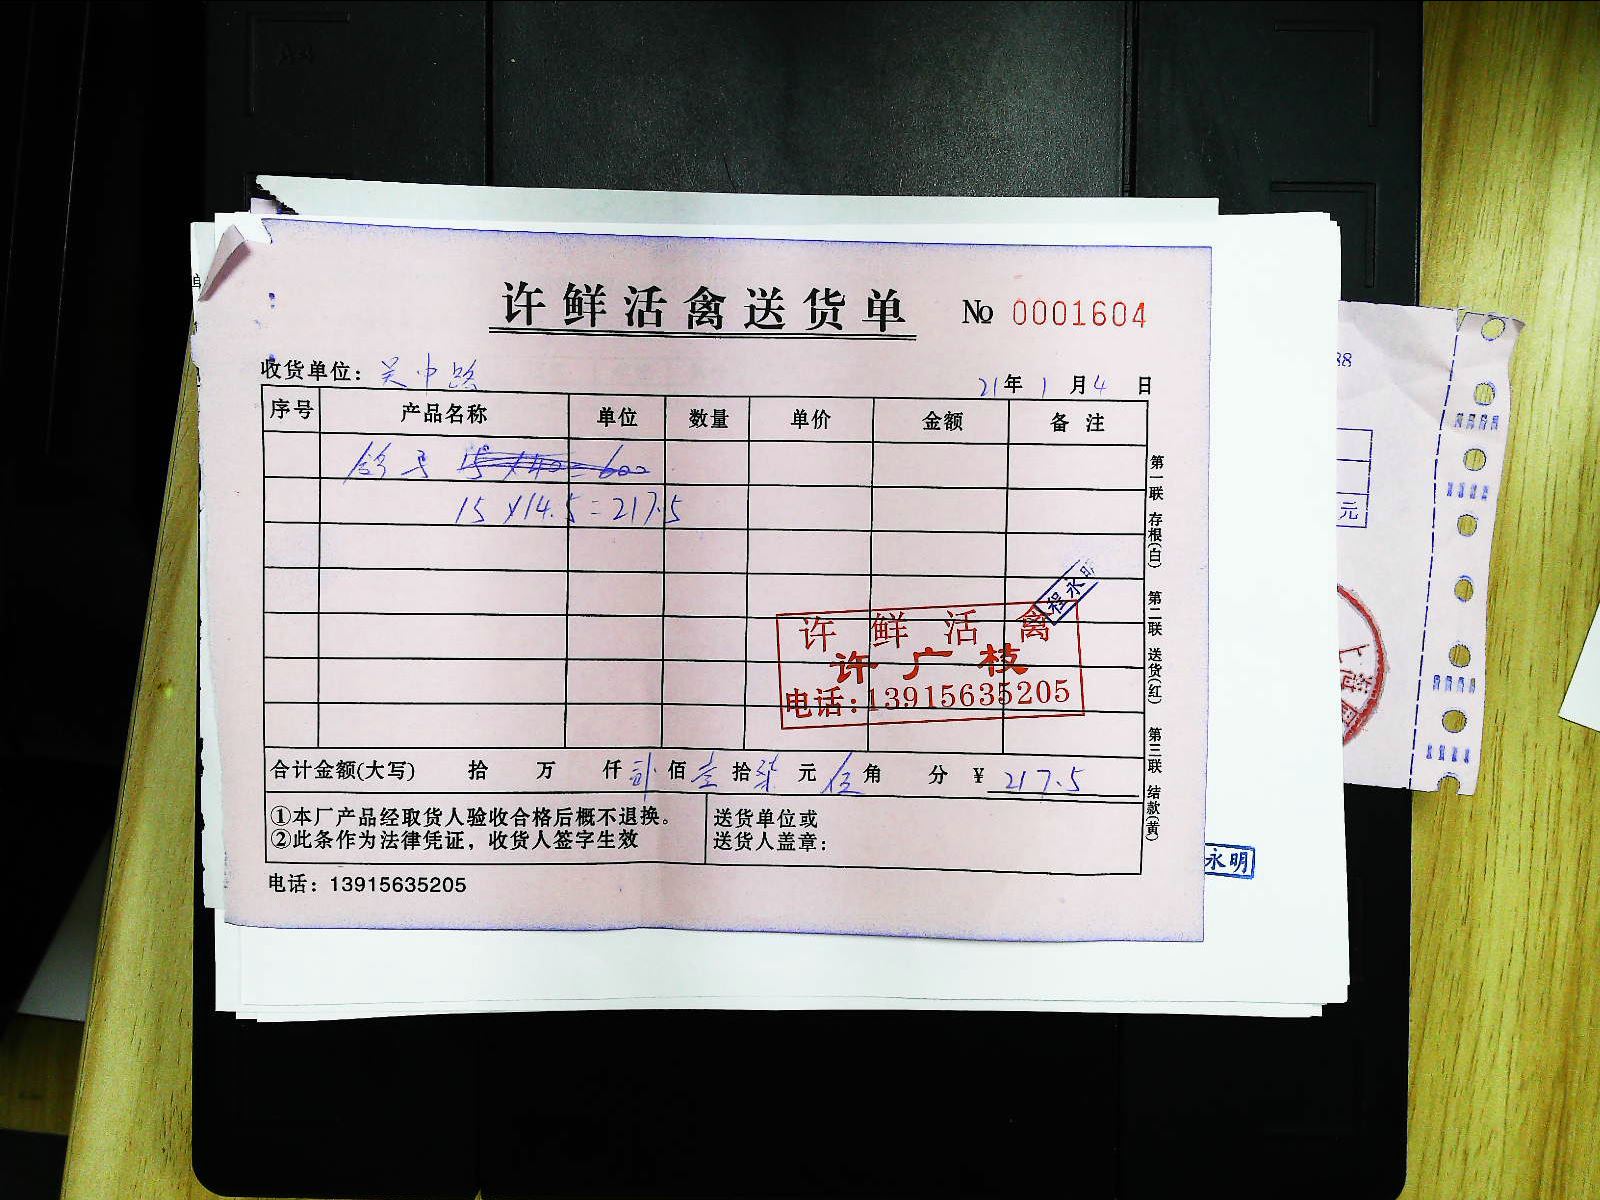 许鲜活禽送货单 № 0001604
收货单位：吴中路
21年 1月4日
序号 产品名称 单位 数量 单价 金额 备注
鸽子 15×40=600
15×14.5=217.5
程永明
许鲜活禽
许广枝
电话：13915635205
合计金额(大写) 拾 万 仟 贰佰壹拾柒元伍角 分 ¥ 217.5
①本厂产品经取货人验收合格后概不退换。
②此条作为法律凭证，收货人签字生效
送货单位或
送货人盖章：
电话：13915635205
第一联 存根(白) 第二联 送货(红) 第三联 结款(黄)
永明
88
元